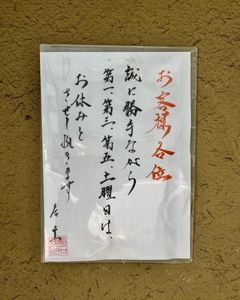 お客様各位
誠に勝手ながら
第一、第三、第五、土曜日は、
お休みと
させて頂きます
店主